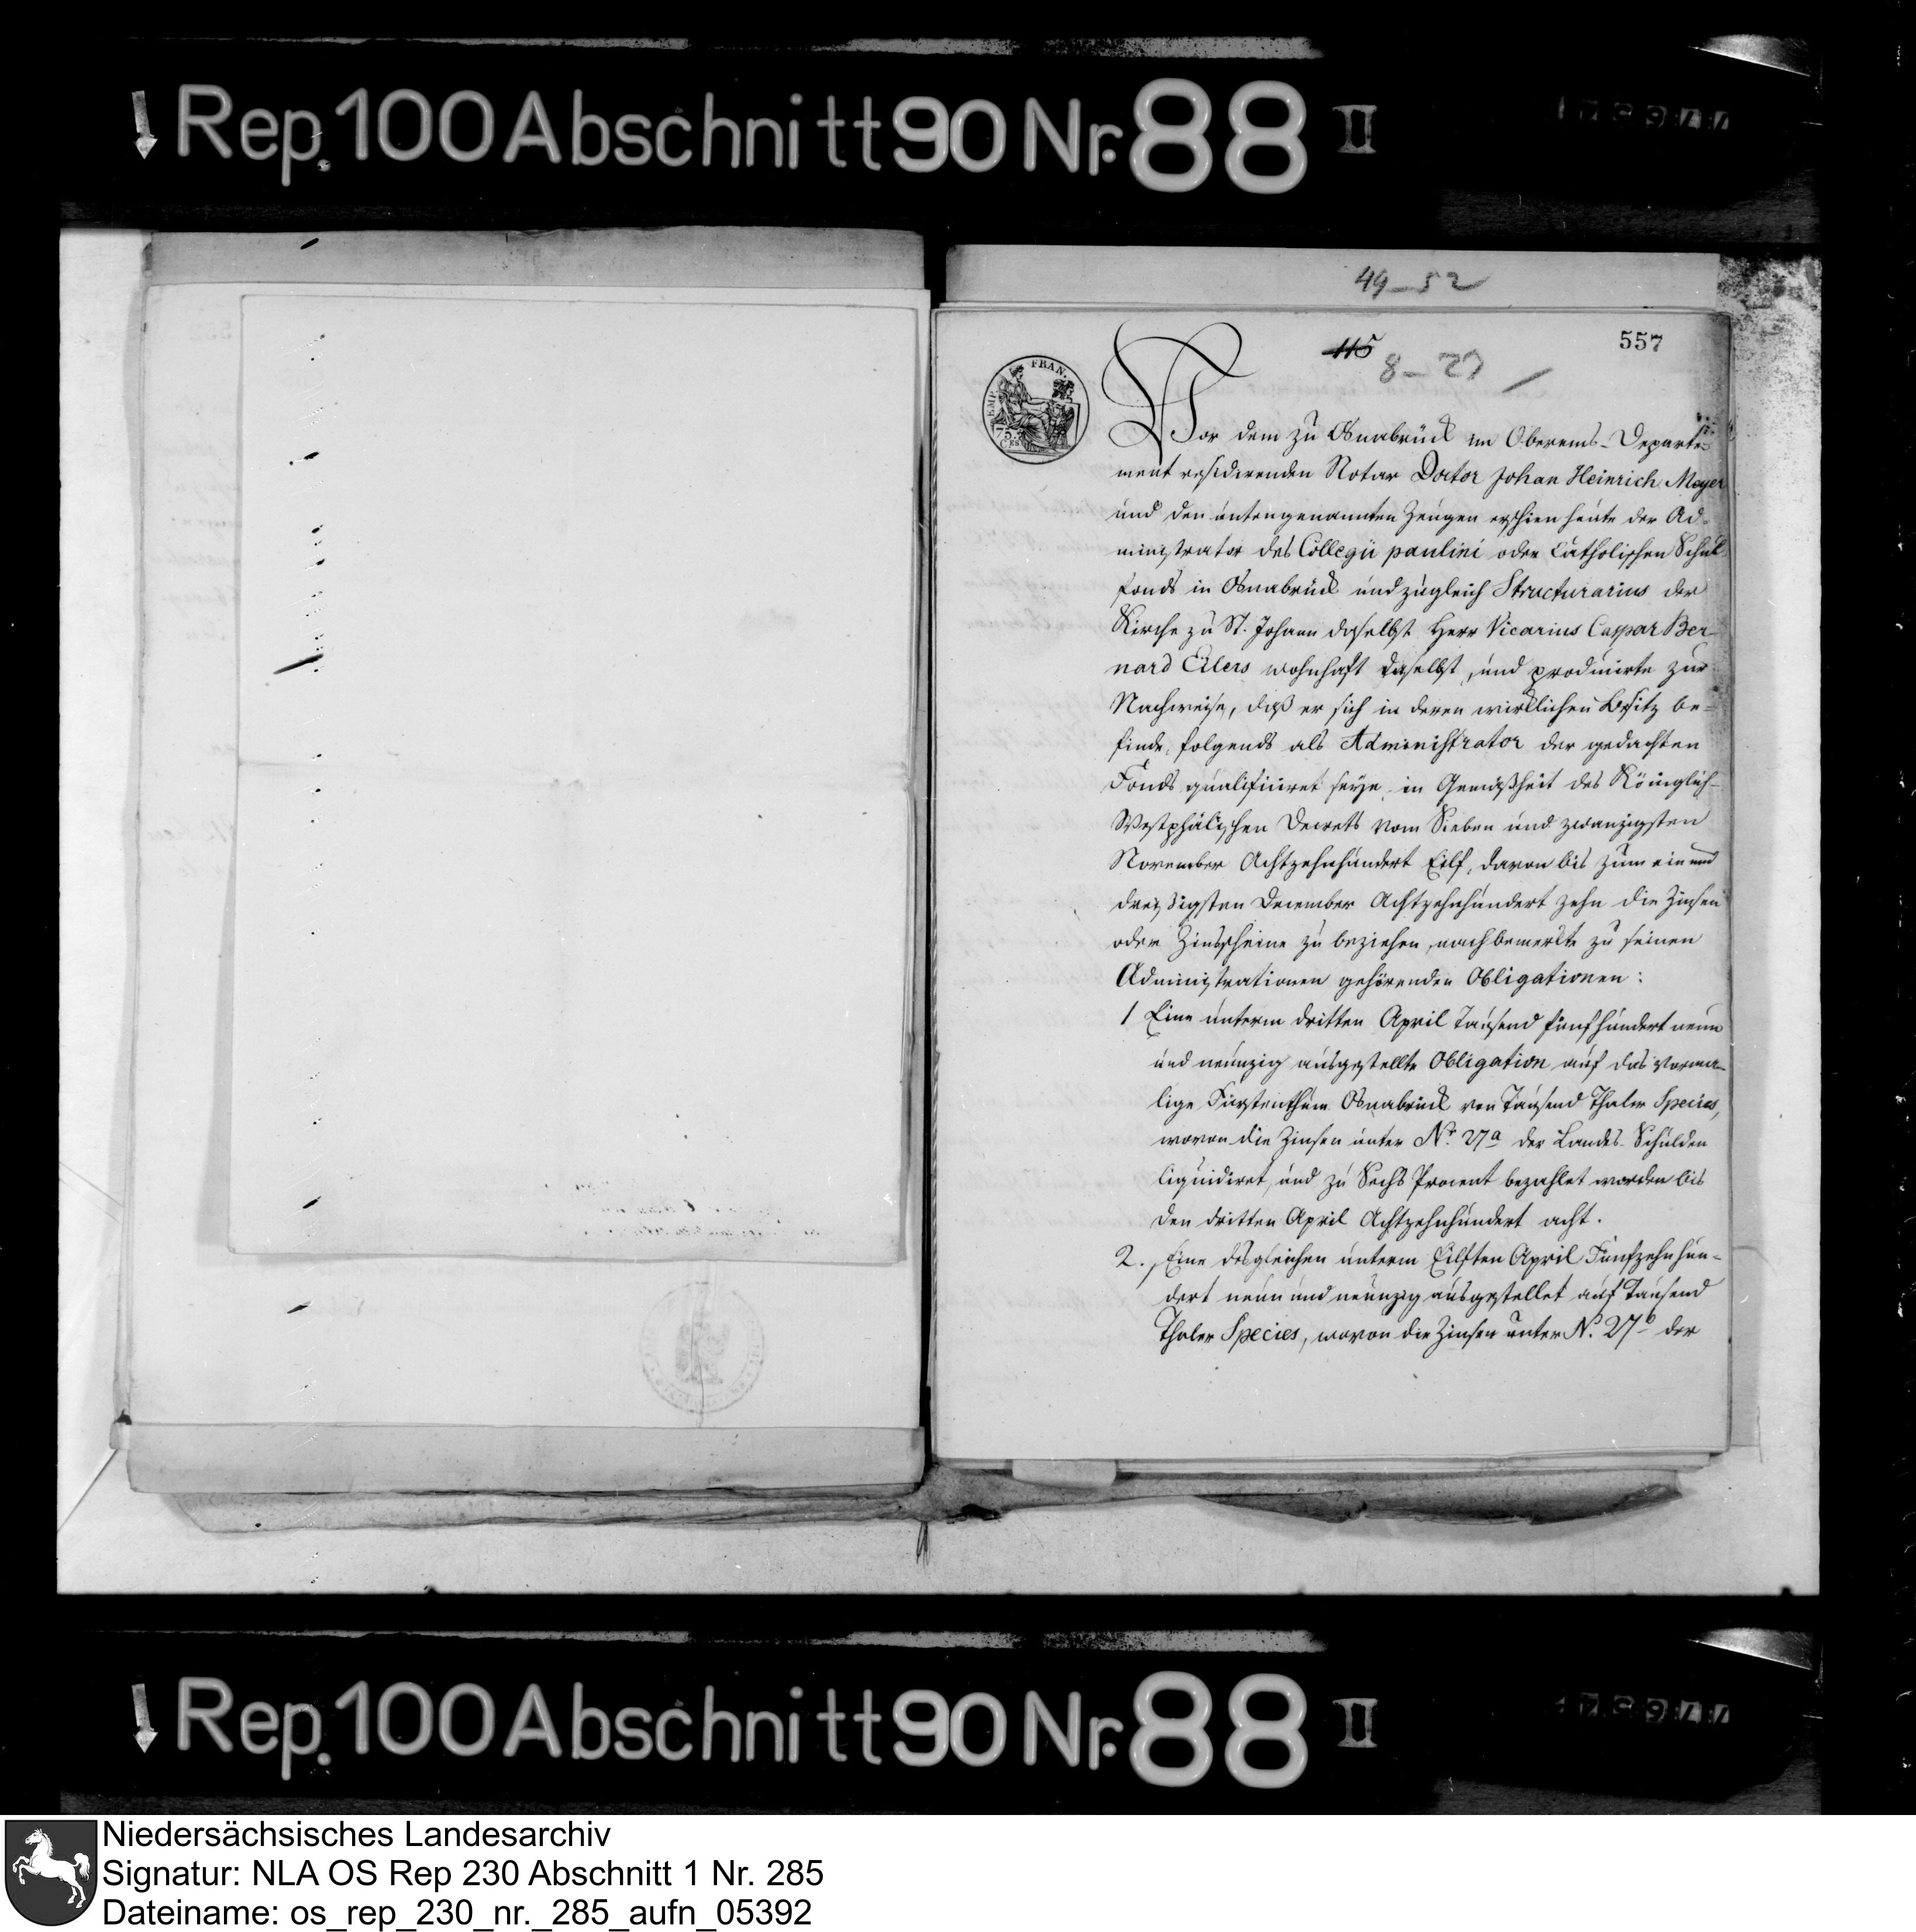 Rep. 100 Abschnitt 90 Nr. 88 II
49-52
557
115
8-27
EMP. FRAN.
75. CEN
Vor dem zu Osnabrück im Oberems-Departe-
ment residirenden Notar Doctor Johan Heinrich Meyer
und den untengenannten Zeugen erschien heute der Ad-
ministrator des Collegii paulini oder Catholischen Schul-
fonds in Osnabrück und zugleich Structurarius der
Kirche zu St. Johann daselbst Herr Vicarius Caspar Ber-
nard Eilers wohnhaft daselbst, und producirte zur
Nachweise, daß er sich in deren wirklichen Besitz be-
finde, folgends als Administrator der gedachten
Fonds qualificiret seye, in Gemäßheit des Königlich-
Westphälischen Decrets vom Sieben und zwanzigsten
November Achtzehnhundert Eilf, davon bis zum ein und
dreißigsten December Achtzehnhundert zehn die Zinsen
oder Zinsscheine zu beziehen, nachbemerkte zu seinen
Administrationen gehörenden Obligationen:
1 Eine unterm dritten April Tausend fünfhundert neun
und neunzig ausgestellte Obligation auf das vorma-
lige Fürstenthum Osnabrück von Tausend Thaler Species,
wovon die Zinsen unter No. 27a der Landes-Schulden
liquidiret, und zu Sechs Procent bezahlet worden bis
den dritten April Achtzehnhundert acht.
2. Eine desgleichen unterm Eilften April Fünfzehnhun-
dert neun und neunzig ausgestellet auf Tausend
Thaler Species, wovon die Zinsen unter N. 27b der
Rep. 100 Abschnitt 90 Nr. 88 II
Niedersächsisches Landesarchiv
Signatur: NLA OS Rep 230 Abschnitt 1 Nr. 285
Dateiname: os_rep_230_nr._285_aufn_05392